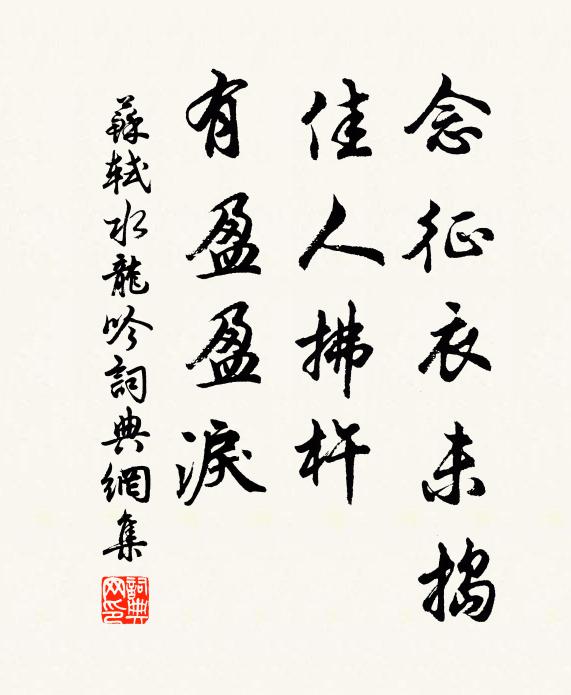 念征衣未搗
佳人拂杵
有盈盈淚
蘇軾水龍吟詞典網集
詞典網印